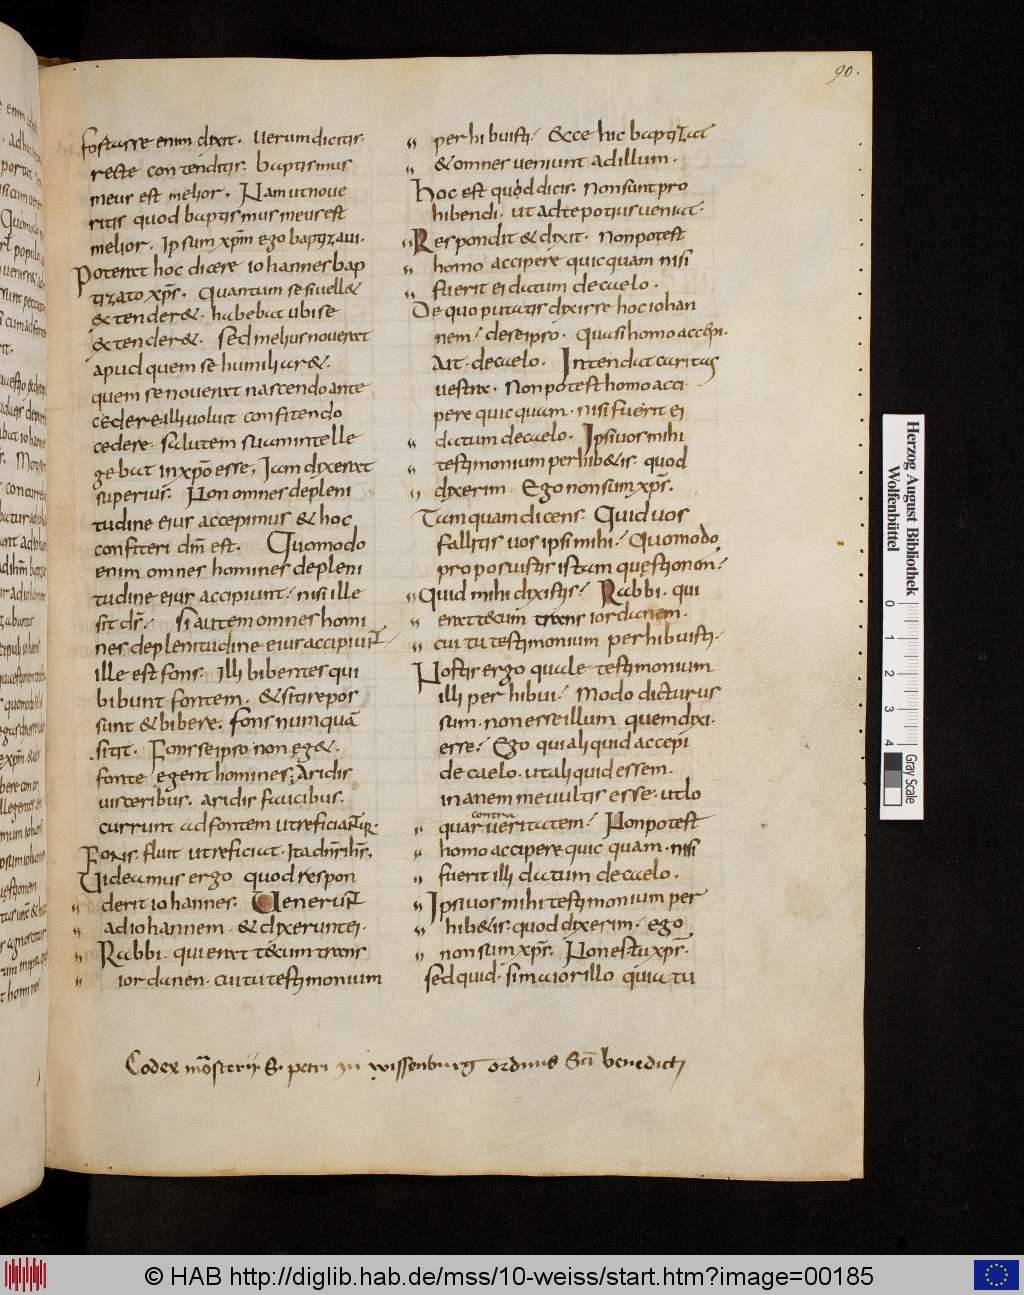 90.
fortasse enim dixit. Uerum dicitis.
recte contenditis. baptismus
meus est melior. Nam ut noue
ritis quod baptismus meus est
melior. Ipsum xp̄m ego baptizaui.
Poterat hoc dicere iohannes bap
tizato xp̄o. Quantum se si uell&
& tender&. habebat ubi se
& tender&. Sed melius nouerat
apud quem se humiliar&.
quem se nouerat nascendo ante
cedere illi uoluit confitendo
cedere. Salutem suam intelle
gebat in xp̄o esse, Iam dixerat
superius. Non omnes de pleni
tudine eius accepimus & hoc
confiteri dm̄ est. Quomodo
enim omnes homines de pleni
tudine eius accipiunt? nisi ille
sit ds̄? Si autem omnes homi
nes de plenitudine eius accipiunt?
ille est fons. Illi bibentes qui
bibunt fontem. & sitire pos
sunt & bibere. fons numquā
sitit. Fons se ipso non eg&.
fonte egent homines; Aridis
uisceribus. aridis faucibus.
currunt ad fontem ut reficiantur.
Fons fluit ut reficiat. Ita dn̄s ih̄s.
Uideamus ergo quod respon
derit iohannes. Uenerunt
ad iohannem. & dixerunt ei.
Rabbi. qui erat tecum trans
iordanen. cui tu testimonium
perhibuisti? Ecce hic baptizat
& omnes ueniunt ad illum.
Hoc est quod dicis. Non sunt pro
hibendi. ut ad te potius ueniat.
Respondit & dixit. Non potest
homo accipere quicquam nisi
fuerit ei datum de caelo.
De quo putatis dixisse hoc iohan
nem? de se ipso. Quasi homo accepi.
Ait. de caelo. Intendat caritas
uestra. Non potest homo acci
pere quicquam. nisi fuerit ei
datum de caelo. Ipsi uos mihi
testimonium perhib&is. quod
dixerim. Ego non sum xp̄s.
Tamquam dicens. Quid uos
fallitis uos ipsi mihi? Quomodo
proposuistis istam questionem?
Quid mihi dixistis? Rabbi. qui
erat tecum trans iordanem.
cui tu testimonium perhibuisti.
Nostis ergo quale testimonium
illi perhibui? Modo dicturus
sum. non esse illum quem dixi.
esse? Ego qui aliquid accepi
de caelo. ut aliquid essem.
inanem me uultis esse. ut lo
contra
quar ueritatem? Non potest
homo accipere quicquam. nisi
fuerit illi datum de caelo.
Ipsi uos mihi testimonium per
hib&is. quod dixerim. ego
non sum xp̄s. Non es tu xp̄s.
sed quid. Si maior illo quia tu
Codex mōsterij S. petri in wissenburg ordinis Sc̄i benedicti
Herzog August Bibliothek
Wolfenbüttel
0 1 2 3 4
Gray Scale
© HAB http://diglib.hab.de/mss/10-weiss/start.htm?image=00185